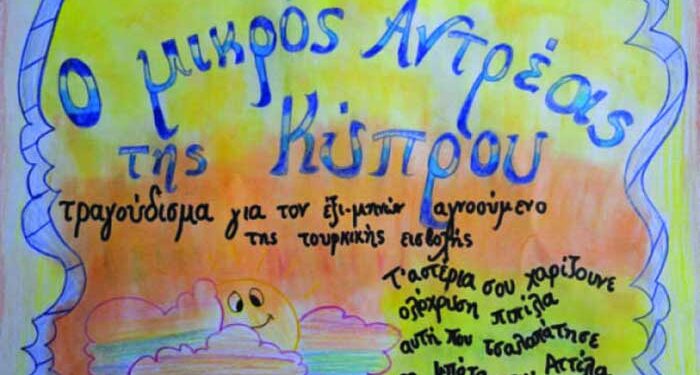 Ο μικρός Αντρέας
της Κύπρου
τραγούδισμα για τον έξι-μηνών αγνοούμενο
της τουρκικής εισβολής
τ'αστέρια σου χαρίζουνε
ολόχρυση πιπίλα
αυτή που τσαλαπάτησε
μπότα του Αττίλα